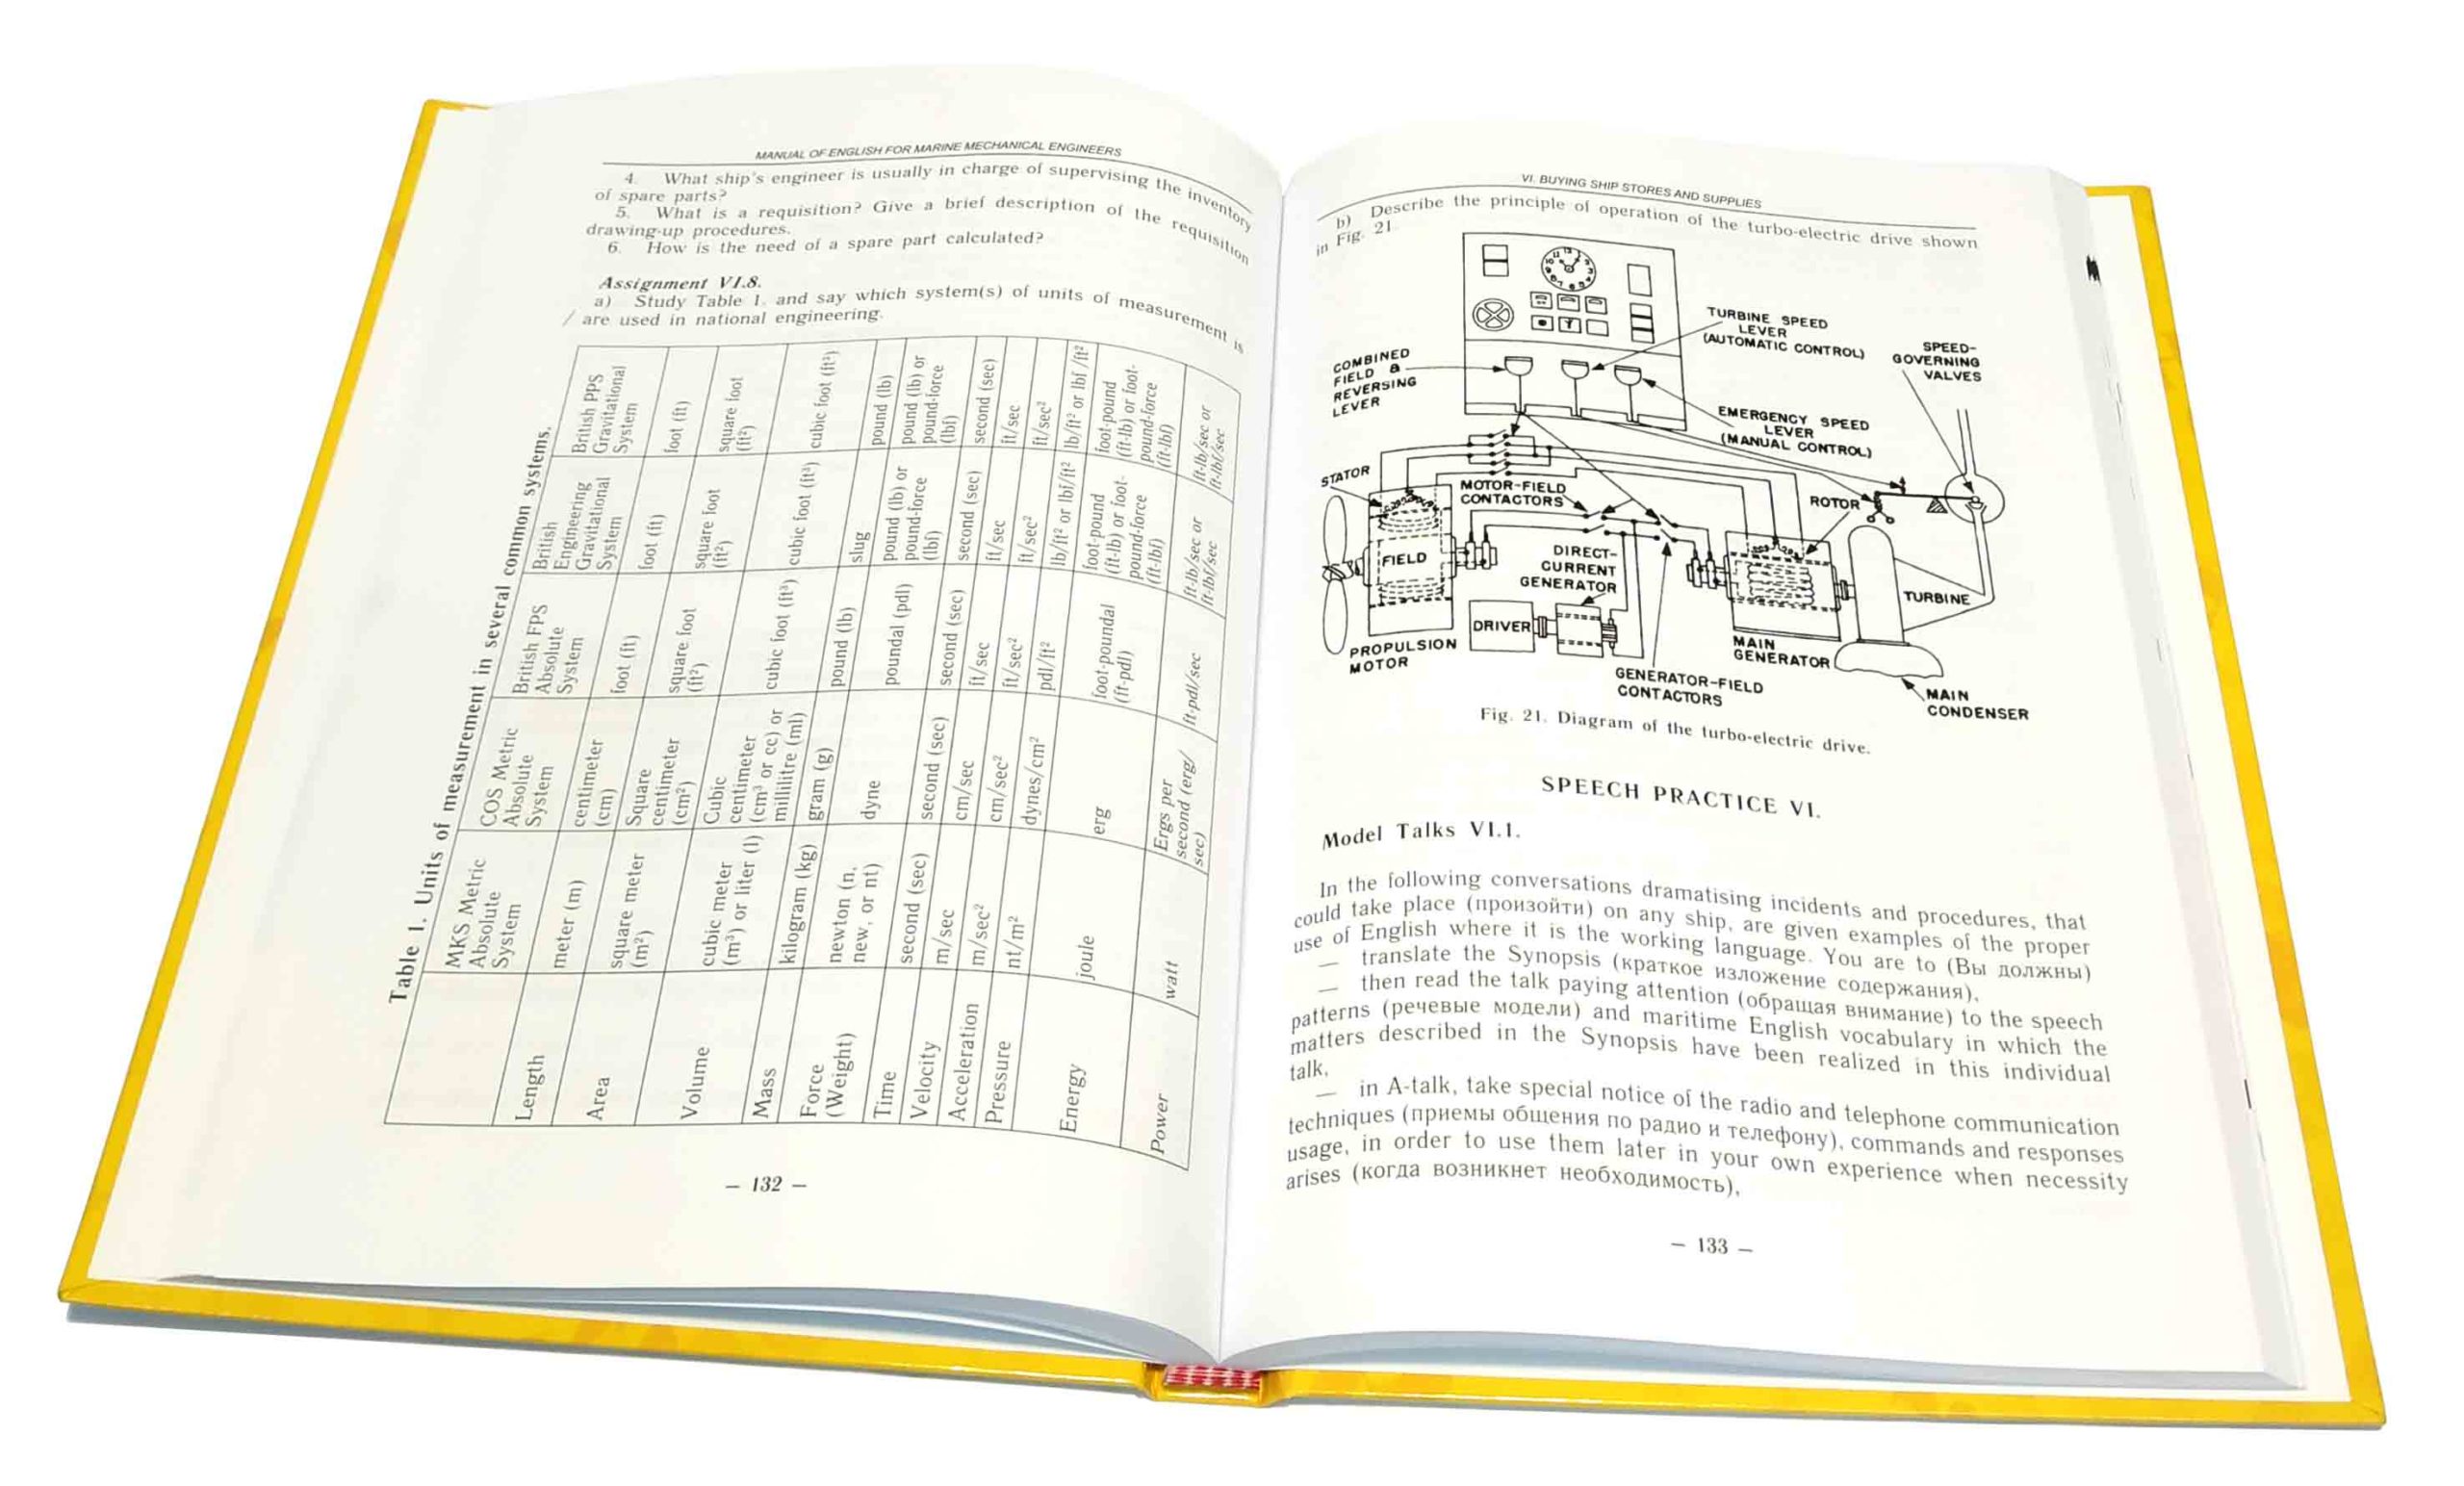 MANUAL OF ENGLISH FOR MARINE MECHANICAL ENGINEERS
4. What ship's engineer is usually in charge of supervising the inventory
of spare parts?
5. What is a requisition? Give a brief description of the requisition
drawing-up procedures.
6. How is the need of a spare part calculated?
Assignment VI.8.
a) Study Table 1. and say which system(s) of units of measurement is
/ are used in national engineering.
Table 1. Units of measurement in several common systems.
MKS Metric
Absolute
System
COS Metric
Absolute
System
British FPS
Absolute
System
British
Engineering
Gravitational
System
British PPS
Gravitational
System
Length
meter (m)
centimeter
(cm)
foot (ft)
foot (ft)
foot (ft)
Area
square meter
(m²)
Square
centimeter
(cm²)
square foot
(ft²)
square foot
(ft²)
square foot
(ft²)
Volume
cubic meter
(m³) or liter (l)
Cubic
centimeter
(cm³ or cc) or
millilitre (ml)
cubic foot (ft³)
cubic foot (ft³)
cubic foot (ft³)
Mass
kilogram (kg)
gram (g)
pound (lb)
slug
pound (lb)
Force
(Weight)
newton (n,
new, or nt)
dyne
poundal (pdl)
pound (lb) or
pound-force
(lbf)
pound (lb) or
pound-force
(lbf)
Time
second (sec)
second (sec)
second (sec)
second (sec)
second (sec)
Velocity
m/sec
cm/sec
ft/sec
ft/sec
ft/sec
Acceleration
m/sec²
cm/sec²
ft/sec²
ft/sec²
ft/sec²
Pressure
nt/m²
dynes/cm²
pdl/ft²
lb/ft² or lbf/ft²
lb/ft² or lbf /ft²
Energy
joule
erg
foot-poundal
(ft-pdl)
foot-pound
(ft-lb) or foot-
pound-force
(ft-lbf)
foot-pound
(ft-lb) or foot-
pound-force
(ft-lbf)
Power
watt
Ergs per
second (erg/
sec)
ft-pdl/sec
ft-lb/sec or
ft-lbf/sec
ft-lb/sec or
ft-lbf/sec
– 132 –
VI. BUYING SHIP STORES AND SUPPLIES
b) Describe the principle of operation of the turbo-electric drive shown
in Fig. 21.
TURBINE SPEED
LEVER
(AUTOMATIC CONTROL)
SPEED-
GOVERNING
VALVES
COMBINED
FIELD &
REVERSING
LEVER
EMERGENCY SPEED
LEVER
(MANUAL CONTROL)
STATOR
MOTOR-FIELD
CONTACTORS
ROTOR
FIELD
DIRECT-
CURRENT
GENERATOR
TURBINE
DRIVER
PROPULSION
MOTOR
MAIN
GENERATOR
GENERATOR-FIELD
CONTACTORS
MAIN
CONDENSER
Fig. 21. Diagram of the turbo-electric drive.
SPEECH PRACTICE VI.
Model Talks VI.1.
In the following conversations dramatising incidents and procedures, that
could take place (произойти) on any ship, are given examples of the proper
use of English where it is the working language. You are to (Вы должны)
— translate the Synopsis (краткое изложение содержания),
— then read the talk paying attention (обращая внимание) to the speech
patterns (речевые модели) and maritime English vocabulary in which the
matters described in the Synopsis have been realized in this individual
talk,
— in A-talk, take special notice of the radio and telephone communication
techniques (приемы общения по радио и телефону), commands and responses
usage, in order to use them later in your own experience when necessity
arises (когда возникнет необходимость),
– 133 –